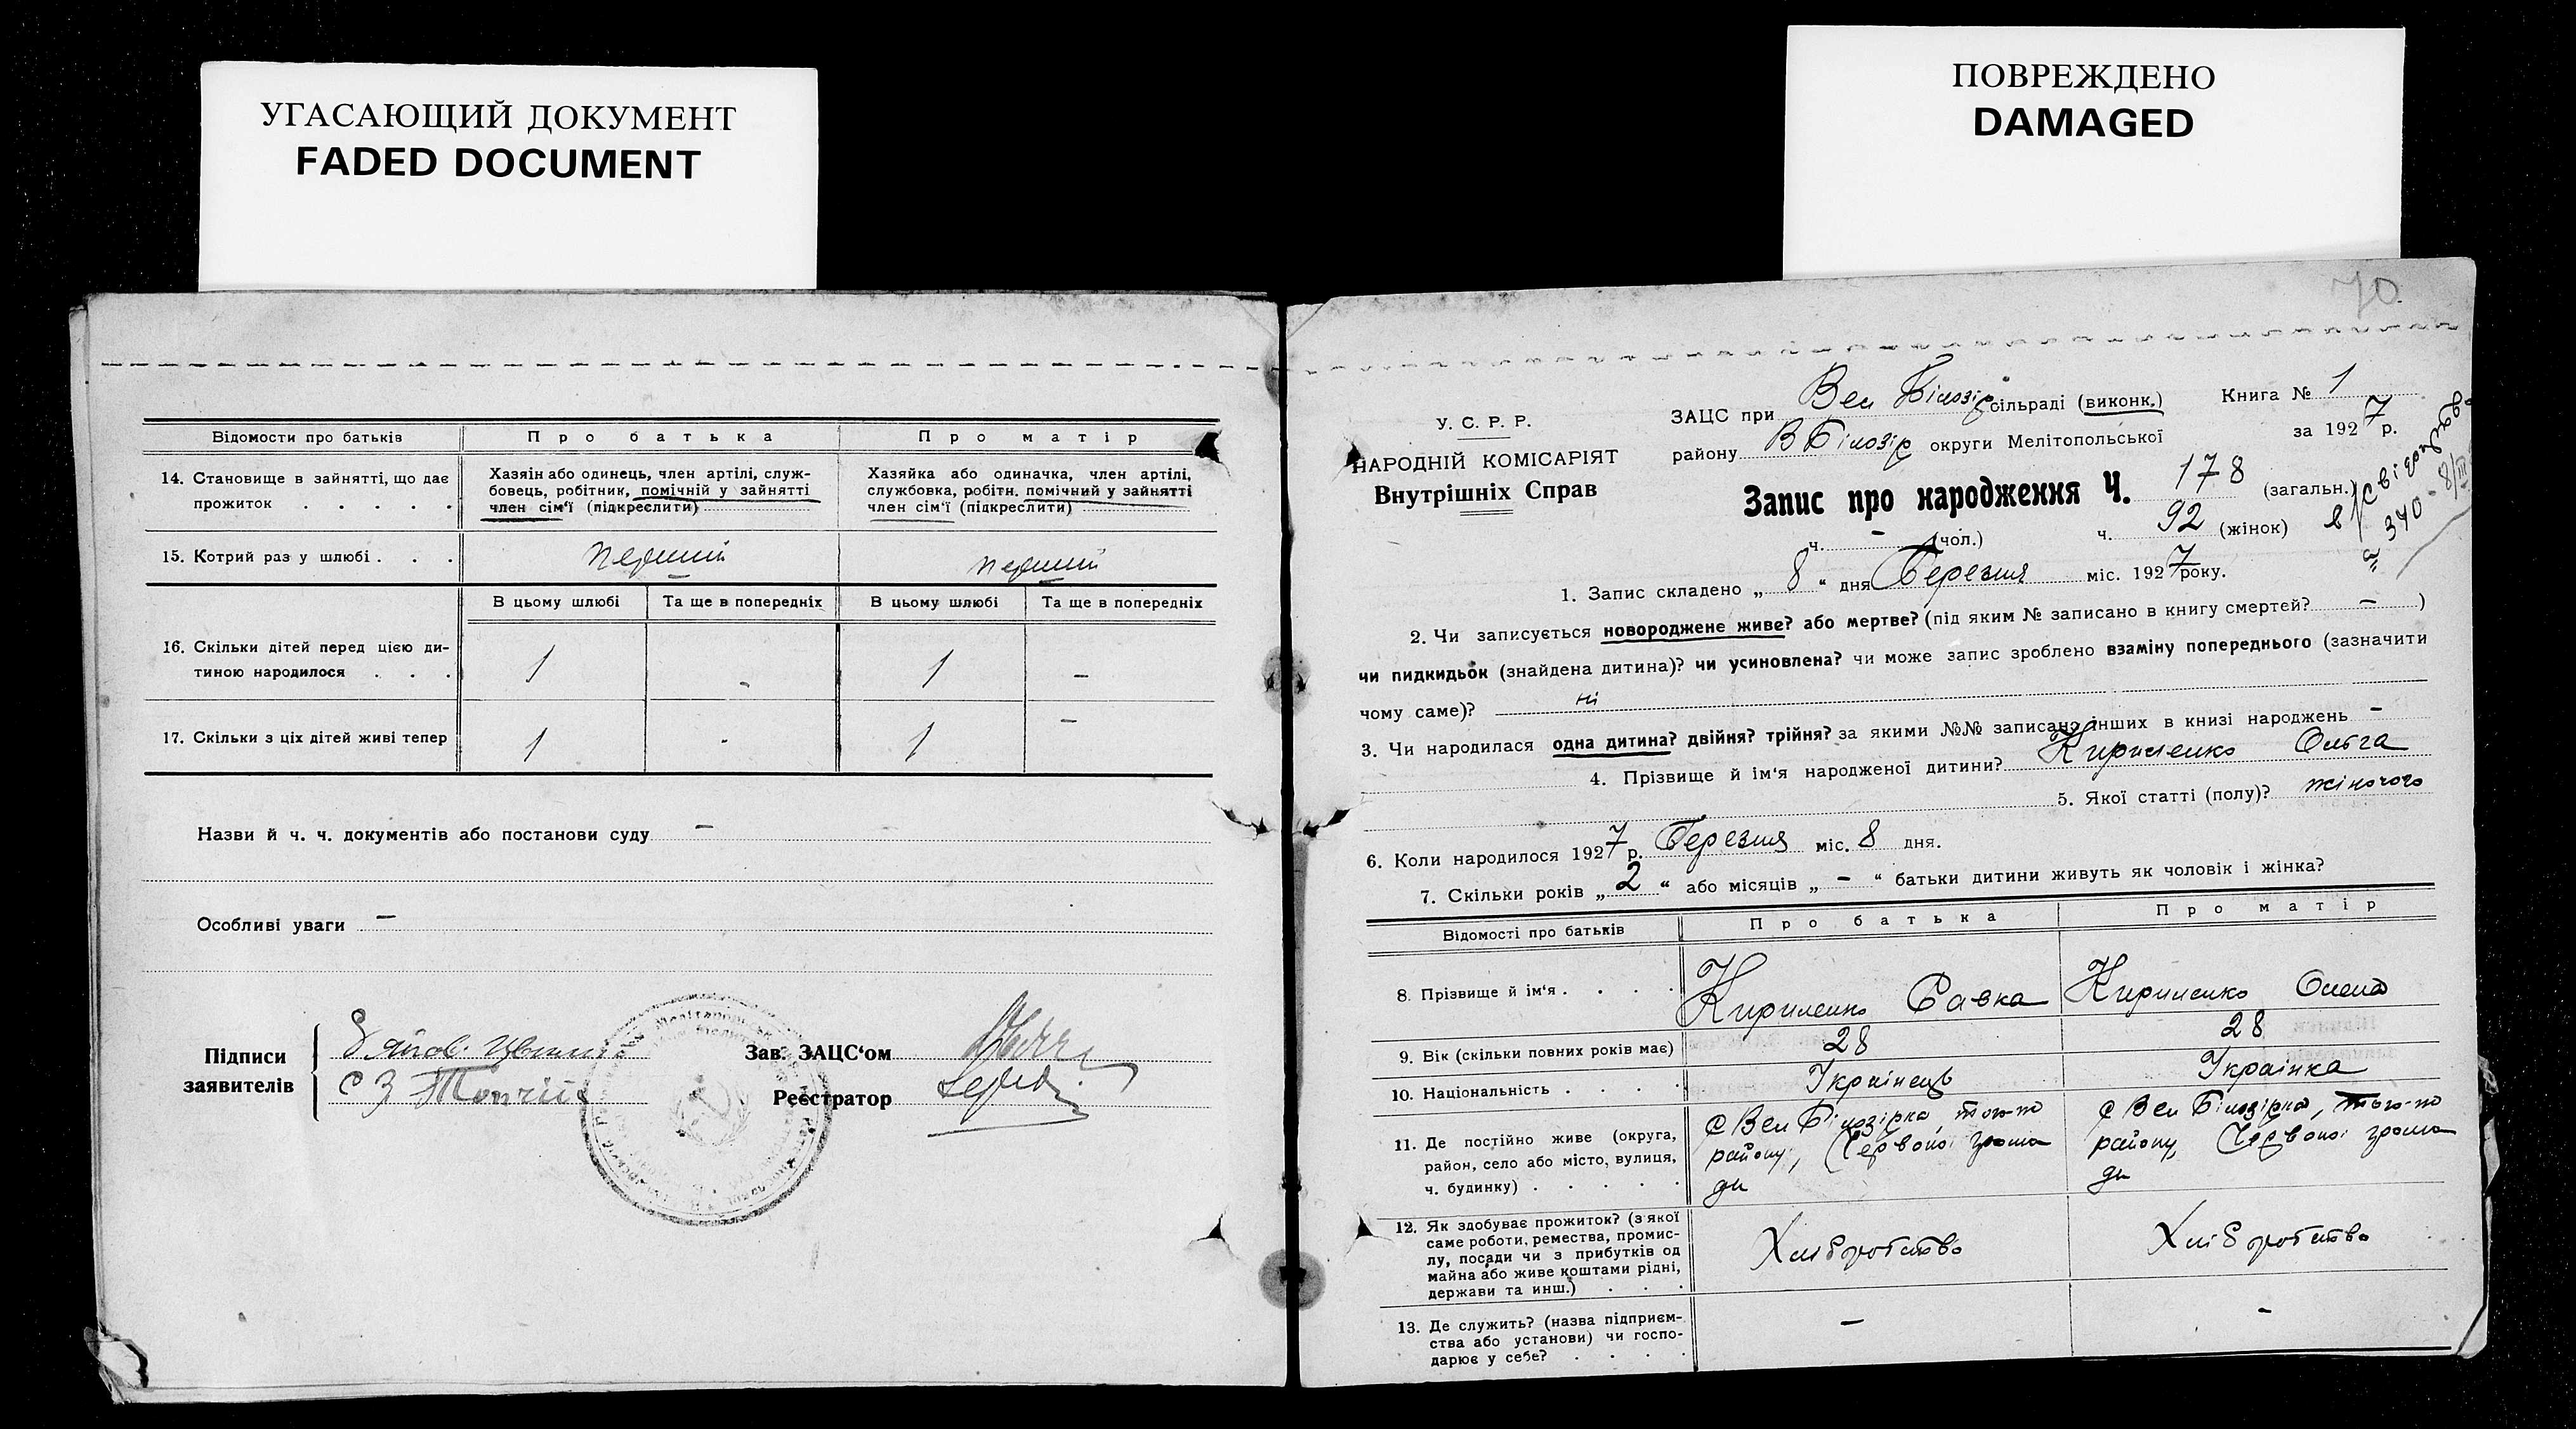 УГАСАЮЩИЙ ДОКУМЕНТ
FADED DOCUMENT
ПОВРЕЖДЕНО
DAMAGED
Відомости про батьків
Про батька
Про матір
14. Становище в зайнятті, що дає
прожиток . . . . .
Хазяін або одинець, член артілі, служ-
бовець, робітник, помічній у зайнятті
член сім'ї (підкреслити)
Хазяйка або одиначка, член артілі,
службовка, робітн. помічний у зайнятті
член сім'ї (підкреслити)
15. Котрий раз у шлюбі . . .
перший
перший
В цьому шлюбі
Та ще в попередніх
В цьому шлюбі
Та ще в попередніх
16. Скільки дітей перед цією ди-
тиною народилося . . .
1 - 1 -
17. Скільки з ціх дітей живі тепер
1 - 1 -
Назви й ч. ч. документів або постанови суду -
Особливі уваги -
Підписи
заявителів
Зав. ЗАЦС'ом
Реєстратор
70.
У. С. Р. Р.
НАРОДНІЙ КОМІСАРІЯТ
Внутрішніх Справ
ЗАЦС при Вел Білозір сільраді (виконк.)
Книга № 1
району В Білозір округи Мелітопольської
за 1927 р.
Запис про народження Ч. 178 (загальн.)
ч. - (чол.)
ч. 92 (жінок)
340 8/III
1. Запис складено „ 8 “ дня Березня міс. 1927 року.
2. Чи записується новороджене живе? або мертве? (під яким № записано в книгу смертей? - )
чи пидкидьок (знайдена дитина)? чи усиновлена? чи може запис зроблено взаміну попереднього (зазначити
чому саме)? ні
3. Чи народилася одна дитина? двійня? трійня? за якими №№ записано інших в книзі народжень -
4. Прізвище й ім'я народженої дитини? Кириленко Ольга
5. Якої статті (полу)? жіночого
6. Коли народилося 1927 р. Березня міс. 8 дня.
7. Скільки років „ 2 “ або місяців „ - “ батьки дитини живуть як чоловік і жінка?
Відомості про батьків
Про батька
Про матір
8. Прізвище й ім'я . . . .
Кириленко Савка
Кириленко Олена
9. Вік (скільки повних років має)
28
28
10. Національність . . . .
Українець
Українка
11. Де постійно живе (округа,
район, село або місто, вулиця,
ч. будинку) . . . . .
с Вел Білозірка, того-ж
району, Червоної грома
ди
с Вел Білозірка, того-ж
району, Червоної грома
ди
12. Як здобуває прожиток? (з якої
саме роботи, ремества, промис-
лу, посади чи з прибутків од
майна або живе коштами рідні,
держави та инш.) . . .
Хліборобство
Хліборобство
13. Де служить? (назва підприєм-
ства або установи) чи госпо-
дарює у себе? . . . .
-
-